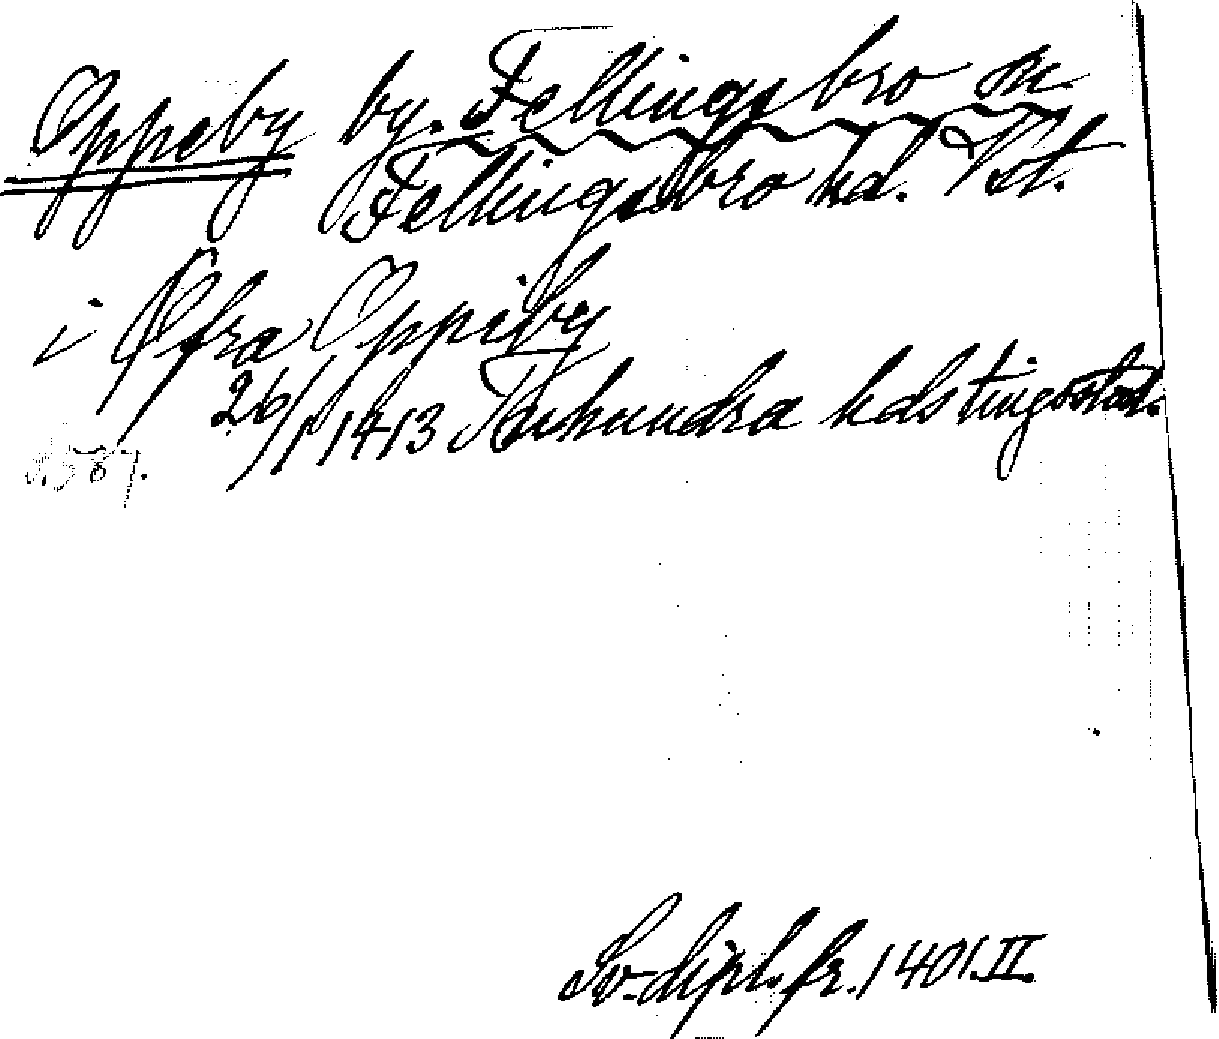 Oppeby by. Fellingsbro sn.
Fellingsbro hd. Vst.
i Øfra Oppiby
26/1 1413 Åkerbo hds tingsstad.
587.
Sv. dipl. fr. 1401. II.